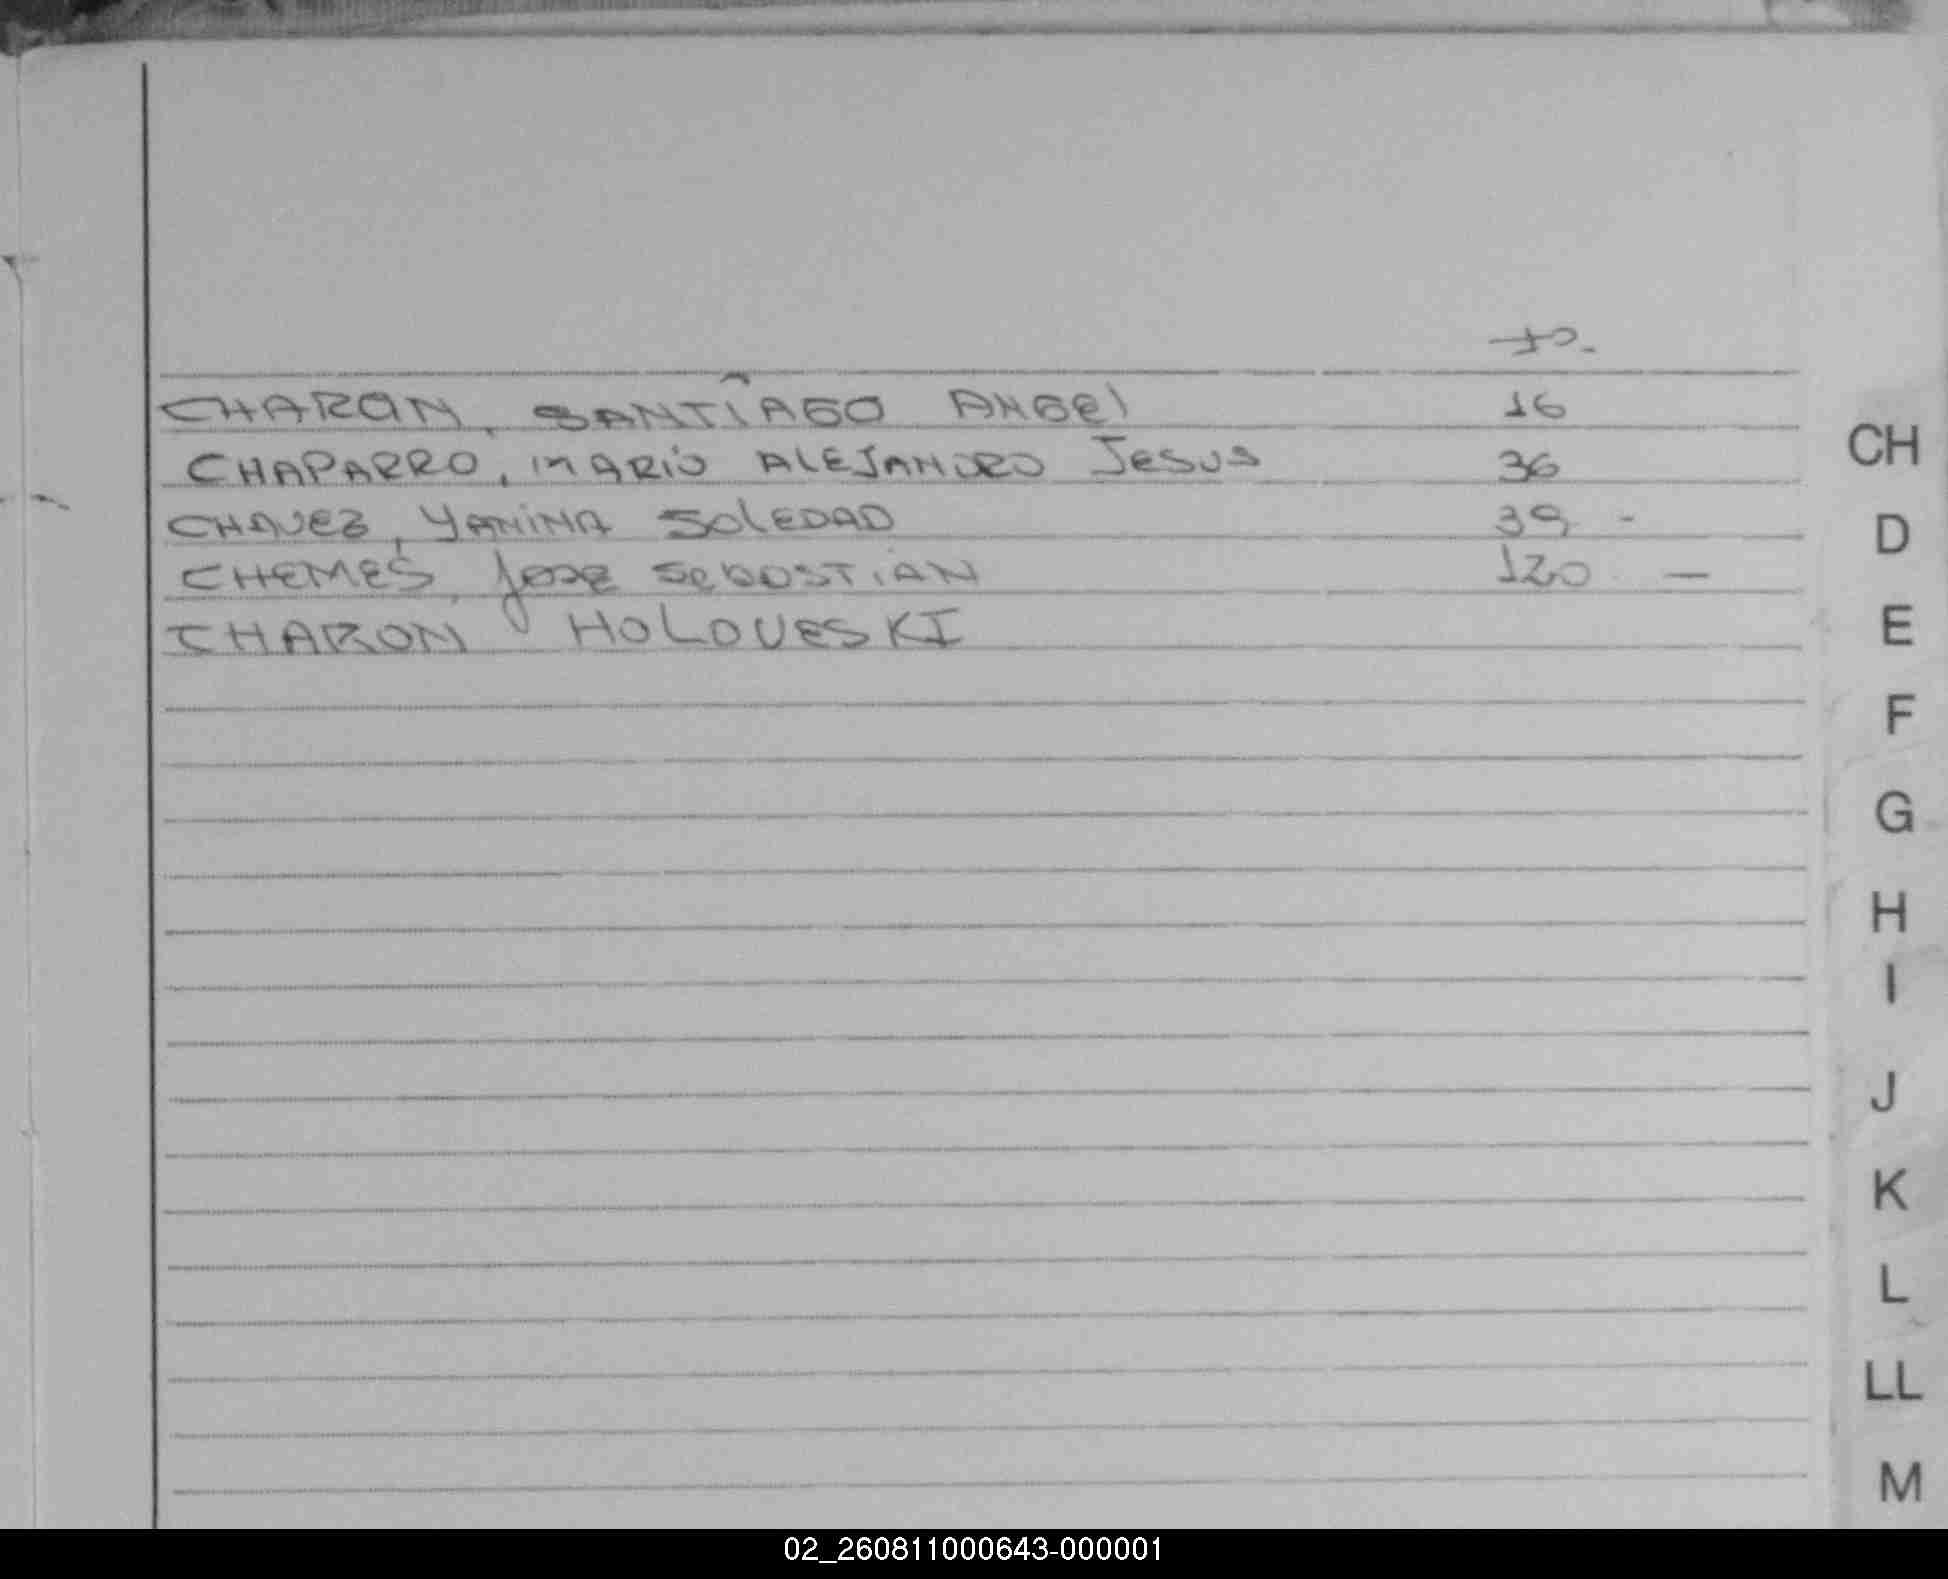 Fº.
CHARON, SANTIAGO ANGEl 16
CHAPARRO, MARIO ALEJANDRO JESUS 36
CHAVEZ, YANINA SOLEDAD 39 -
CHEMES, JOSE SEBASTIAN 120 —
CHARON HOLOVESKI
CH
D
E
F
G
H
I
J
K
L
LL
M
02_260811000643-000001